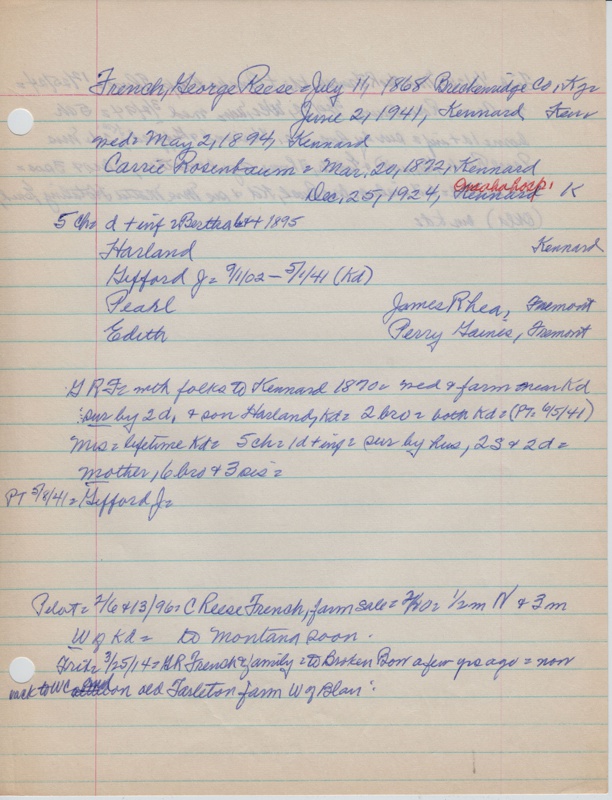 French, George Reese = July 11, 1868 Breckenridge Co., Ky =
June 2, 1941, Kennard Kenn
med = May 2, 1894, Kennard
Carrie Rosenbaum = Mar, 20, 1872, Kennard
Omaha hosp.
Dec, 25, 1924, Kennard K
5 ch = d + inf = Bertha 1895
Harland Kennard
Gifford J = 9/1/02 - 5/1/41 (Kd)
Pearl James Rhea, Fremont
Edith Perry Gaines, Fremont
G R F = with folks to Kennard 1870 = med & farm near Kd
sur by 2 d, & son Harland, Kd = 2 bro = both Kd = (PT = 6/5/41)
Mrs = lifetime Kd = 5 ch = 1 d + inf = sur by hus, 2 S & 2 d =
mother, 6 bro & 3 sis =
PT 5/8/41 = Gifford J =
Pilot = 2/6 & 13/96 = C Reese French, farm sale = 2/20 = 1/2 m N & 3 m
W of Kd = to Montana soon.
3/25/14 = G R French & family = to Broken Bow a few yrs ago = now
back to WC and on old Tarleton farm W of Blair :